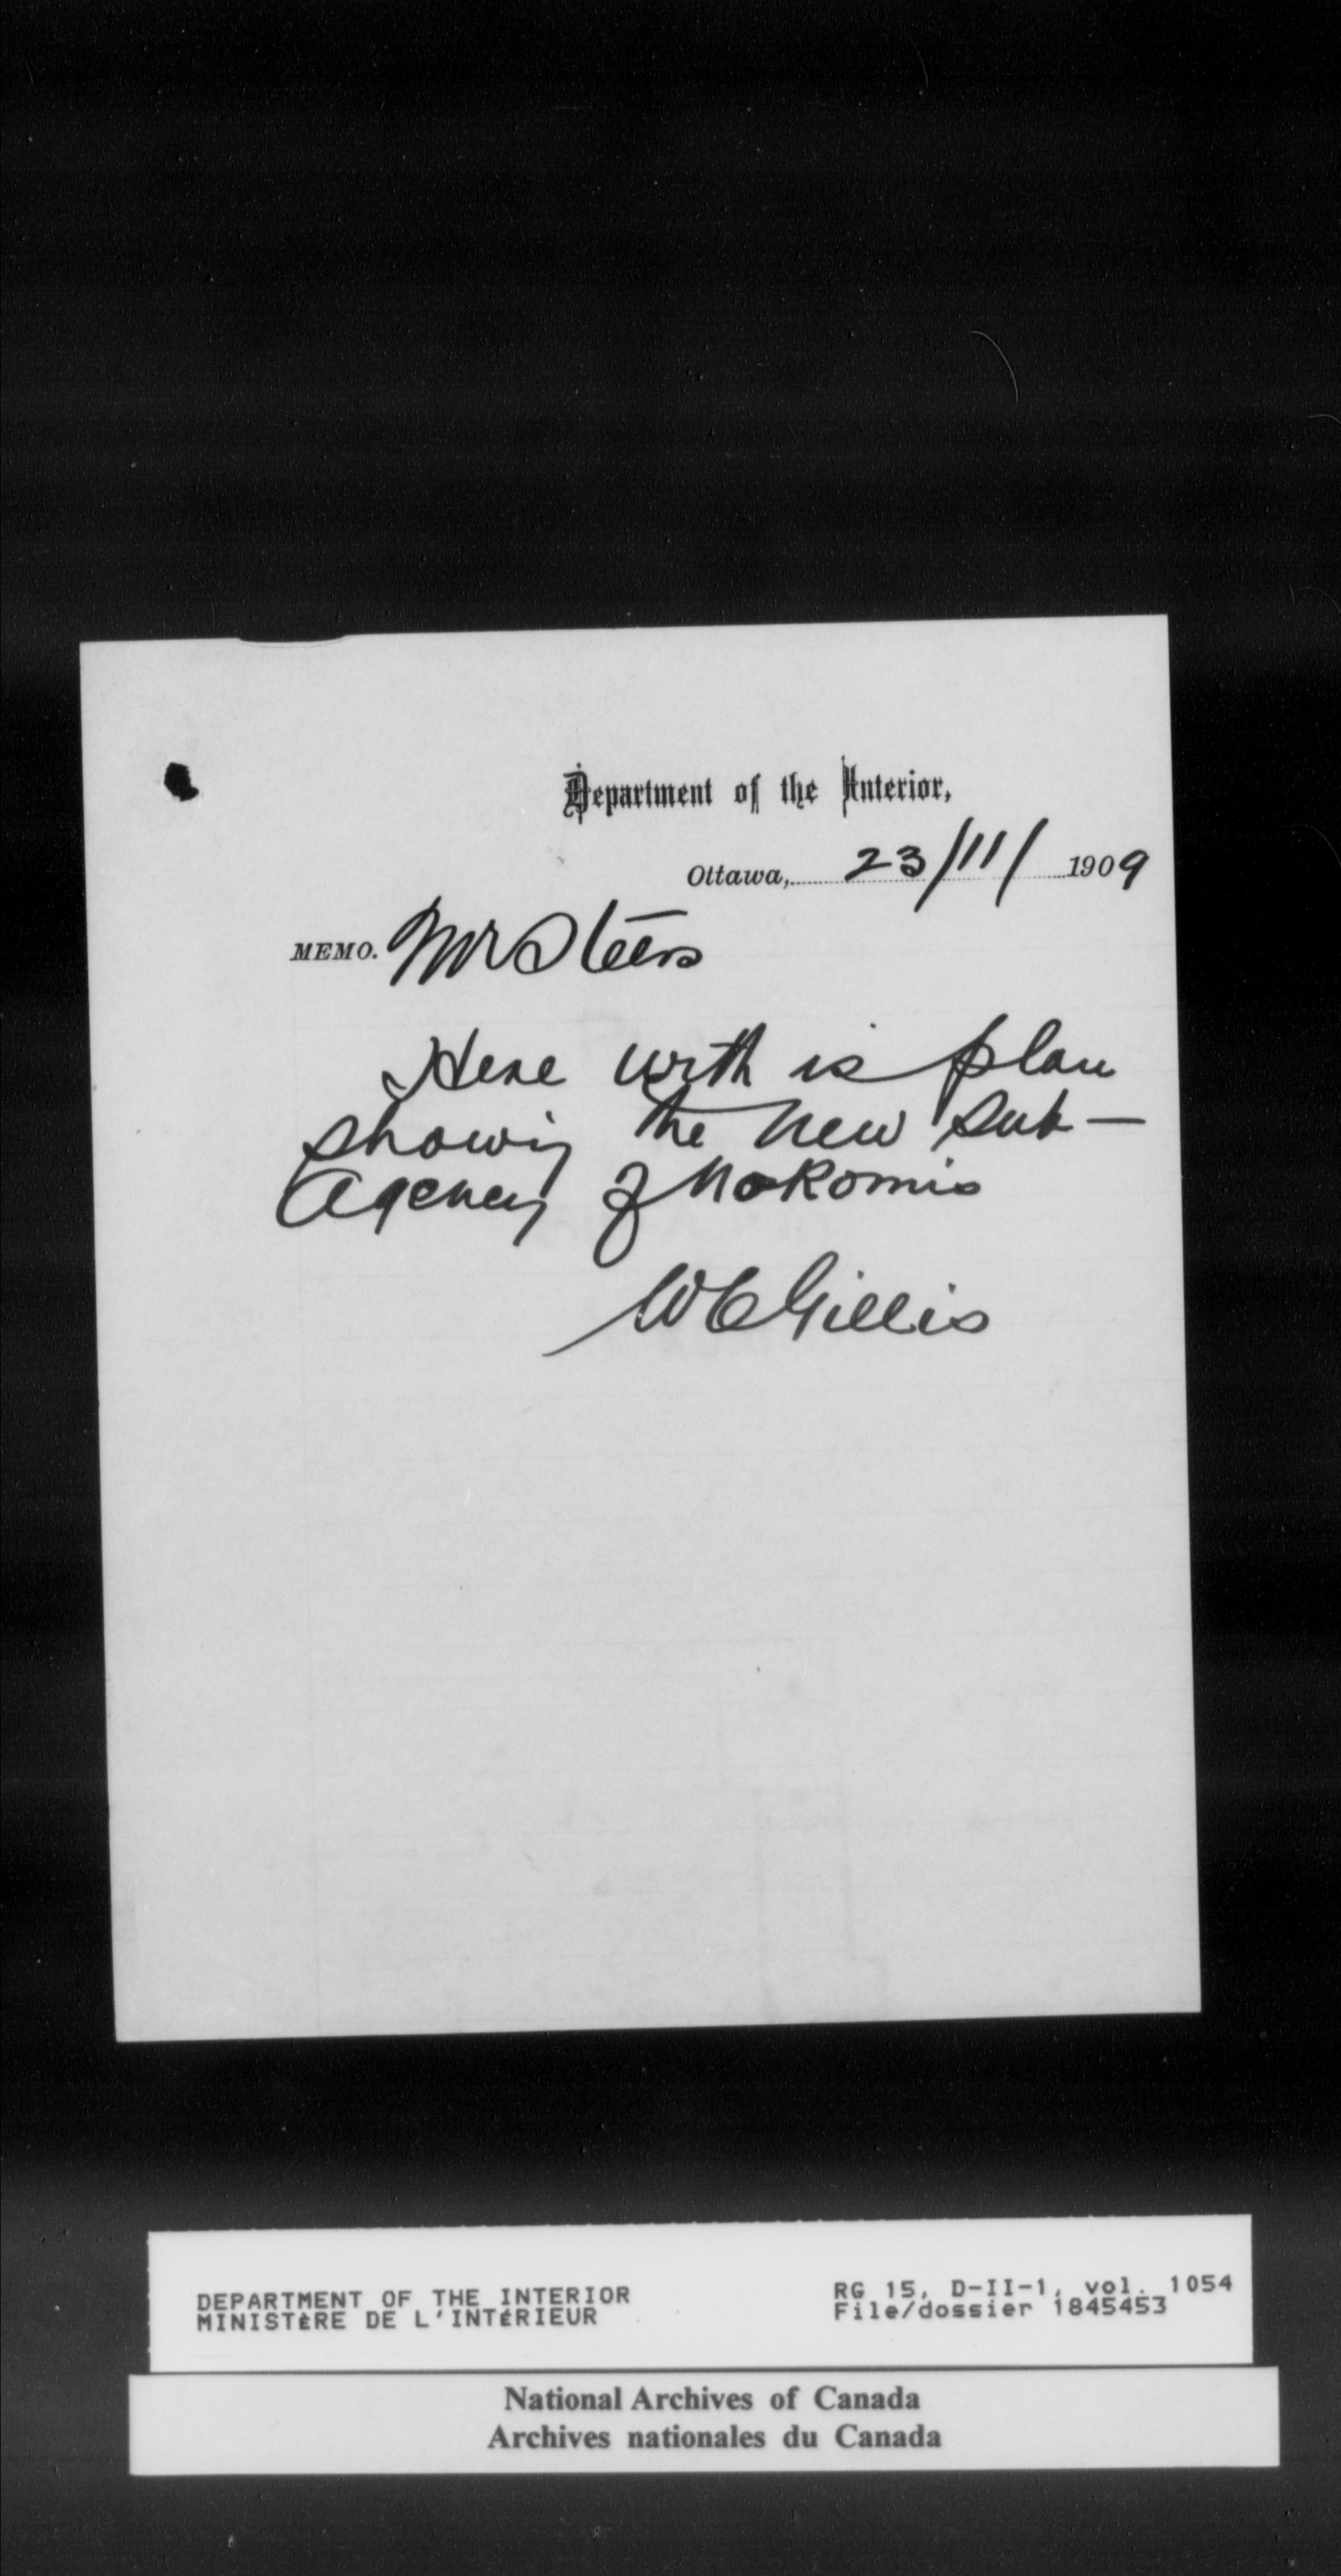 Department of the Interior,
Ottawa, 23/11/ 1909
MEMO. Mr Steers
Here with is plan
showing the new Sub-
Agency of Nokomis
WC Gillis
DEPARTMENT OF THE INTERIOR
MINISTÈRE DE L'INTÉRIEUR
RG 15, D-II-1, vol. 1054
File/dossier 1845453
National Archives of Canada
Archives nationales du Canada